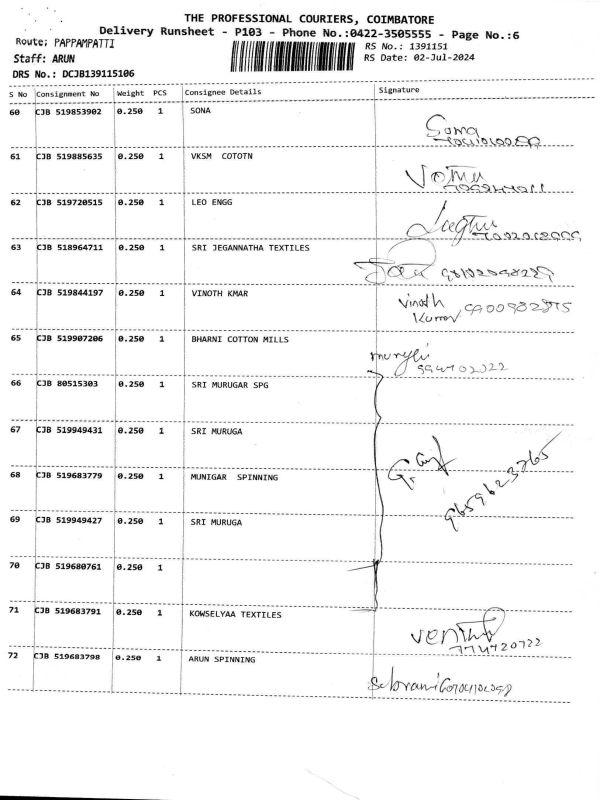 THE PROFESSIONAL COURIERS, COIMBATORE
Delivery Runsheet - P103 - Phone No.:0422-3505555 - Page No.:6
Route; PAPPAMPATTI
RS No.: 1391151
Staff: ARUN
RS Date: 02-Jul-2024
DRS No.: DCJB139115106
S No Consignment No Weight PCS Consignee Details Signature
60 CJB 519853902 0.250 1 SONA
Soma
61 CJB 519885635 0.250 1 VKSM COTOTN
62 CJB 519720515 0.250 1 LEO ENGG
63 CJB 518964711 0.250 1 SRI JEGANNATHA TEXTILES
64 CJB 519844197 0.250 1 VINOTH KMAR
Vinoth
Kumar
65 CJB 519907206 0.250 1 BHARNI COTTON MILLS
66 CJB 80515303 0.250 1 SRI MURUGAR SPG
67 CJB 519949431 0.250 1 SRI MURUGA
68 CJB 519683779 0.250 1 MUNIGAR SPINNING
9659623265
69 CJB 519949427 0.250 1 SRI MURUGA
70 CJB 519680761 0.250 1
71 CJB 519683791 0.250 1 KOWSELYAA TEXTILES
72 CJB 519683798 0.250 1 ARUN SPINNING